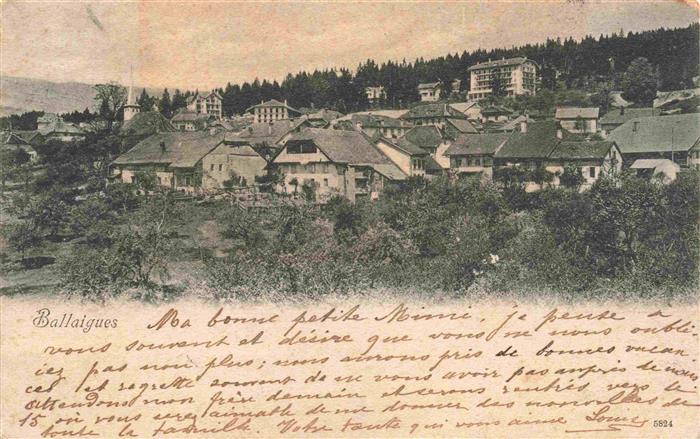 Ballaigues
Ma bonne petite Mimi, je pense à
vous souvent et désire que vous ne nous oubli-
iez pas non plus; nous aurons pris de bonnes vacan
ces et regrette souvent de ne vous avoir pas auprès de nous
attendons mon frère demain et serons rentrés vers le
15, où vous serez aimable de me donner des nouvelles de
toute la famille. Votre tante qui vous aime
5824